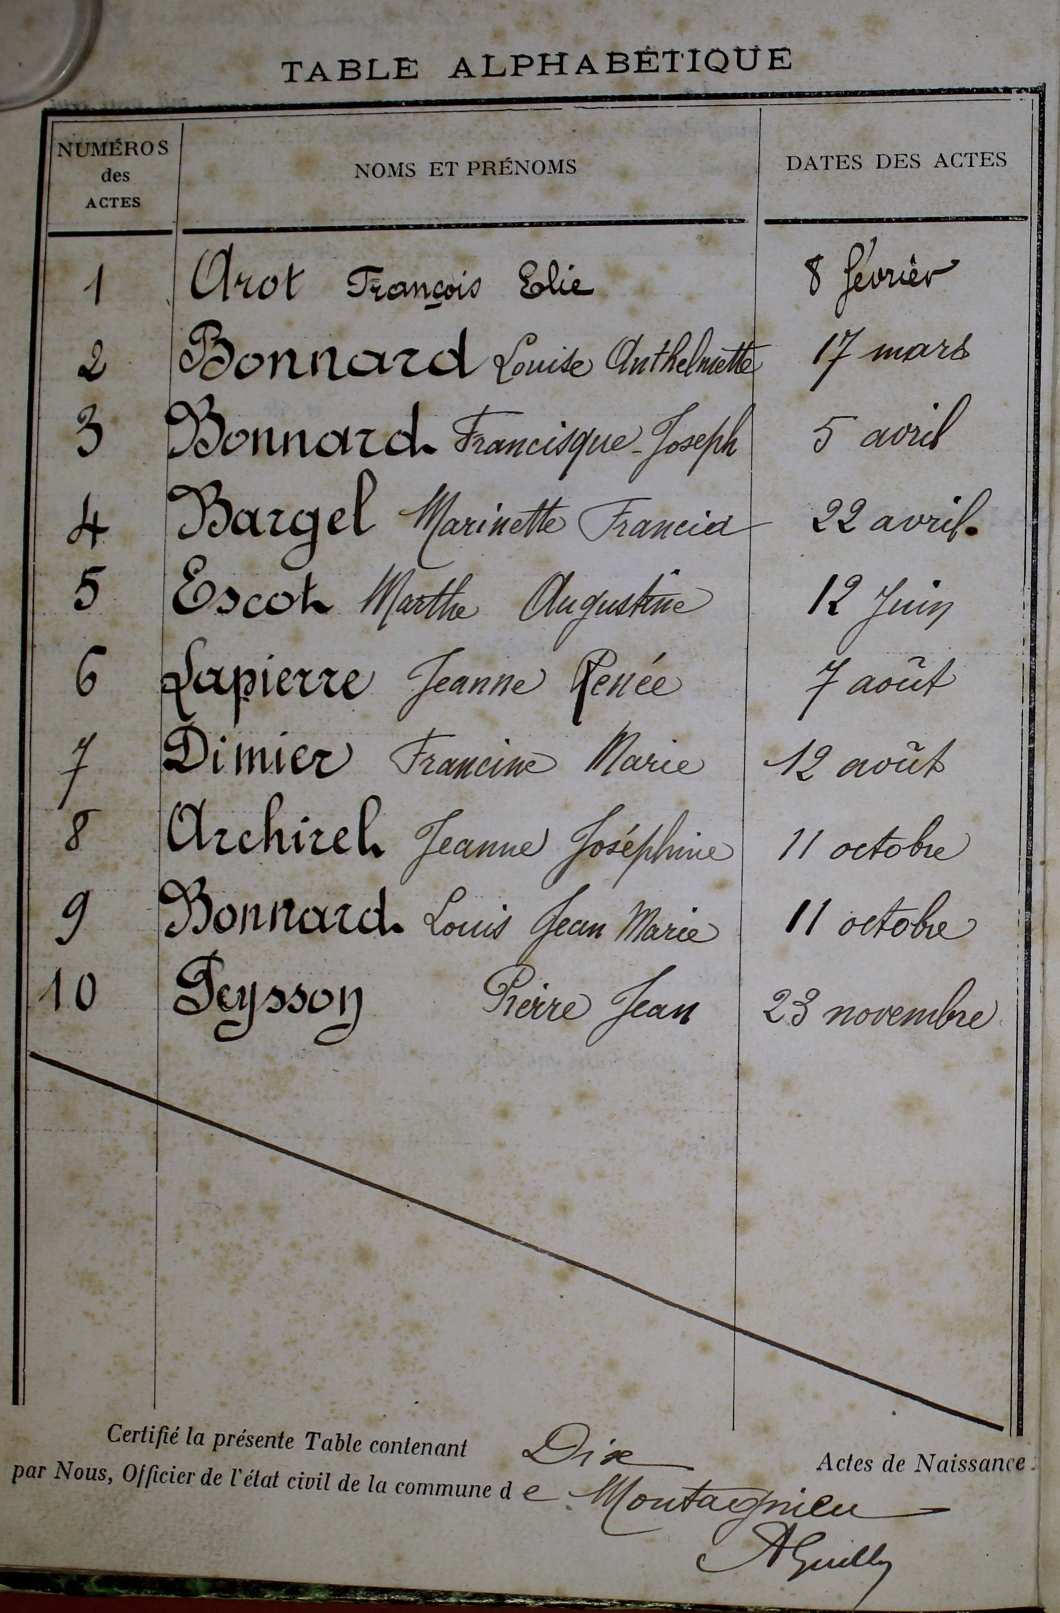 TABLE ALPHABÉTIQUE
NUMÉROS des ACTES NOMS ET PRÉNOMS DATES DES ACTES
1 Arot François Elie 8 février
2 Bonnard Louise Anthelmette 17 mars
3 Bonnard Francisque-Joseph 5 avril
4 Bargel Marinette Francia 22 avril.
5 Escot Marthe Augustine 12 Juin
6 Lapierre Jeanne Renée 7 août
7 Dimier Francine Marie 12 août
8 Archirel Jeanne Joséphine 11 octobre
9 Bonnard Louis Jean Marie 11 octobre
10 Peysson Pierre Jean 23 novembre
Certifié la présente Table contenant Dix Actes de Naissance
par Nous, Officier de l'état civil de la commune de Montagnieu